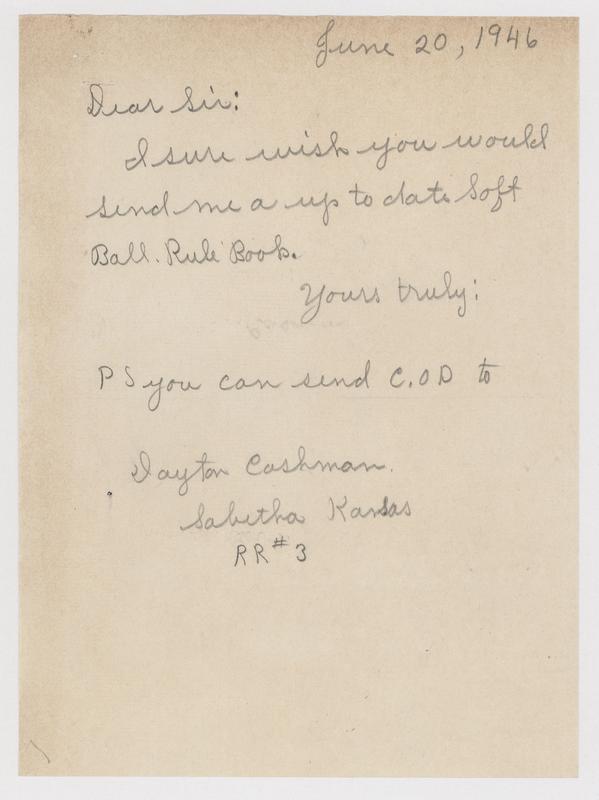 June 20, 1946
Dear Sir:
I sure wish you would
send me a up to date Soft
Ball. Rule Book.
Yours truly:
P S you can send C.O D to
Dayton Cashman.
Sabetha Kansas
RR#3